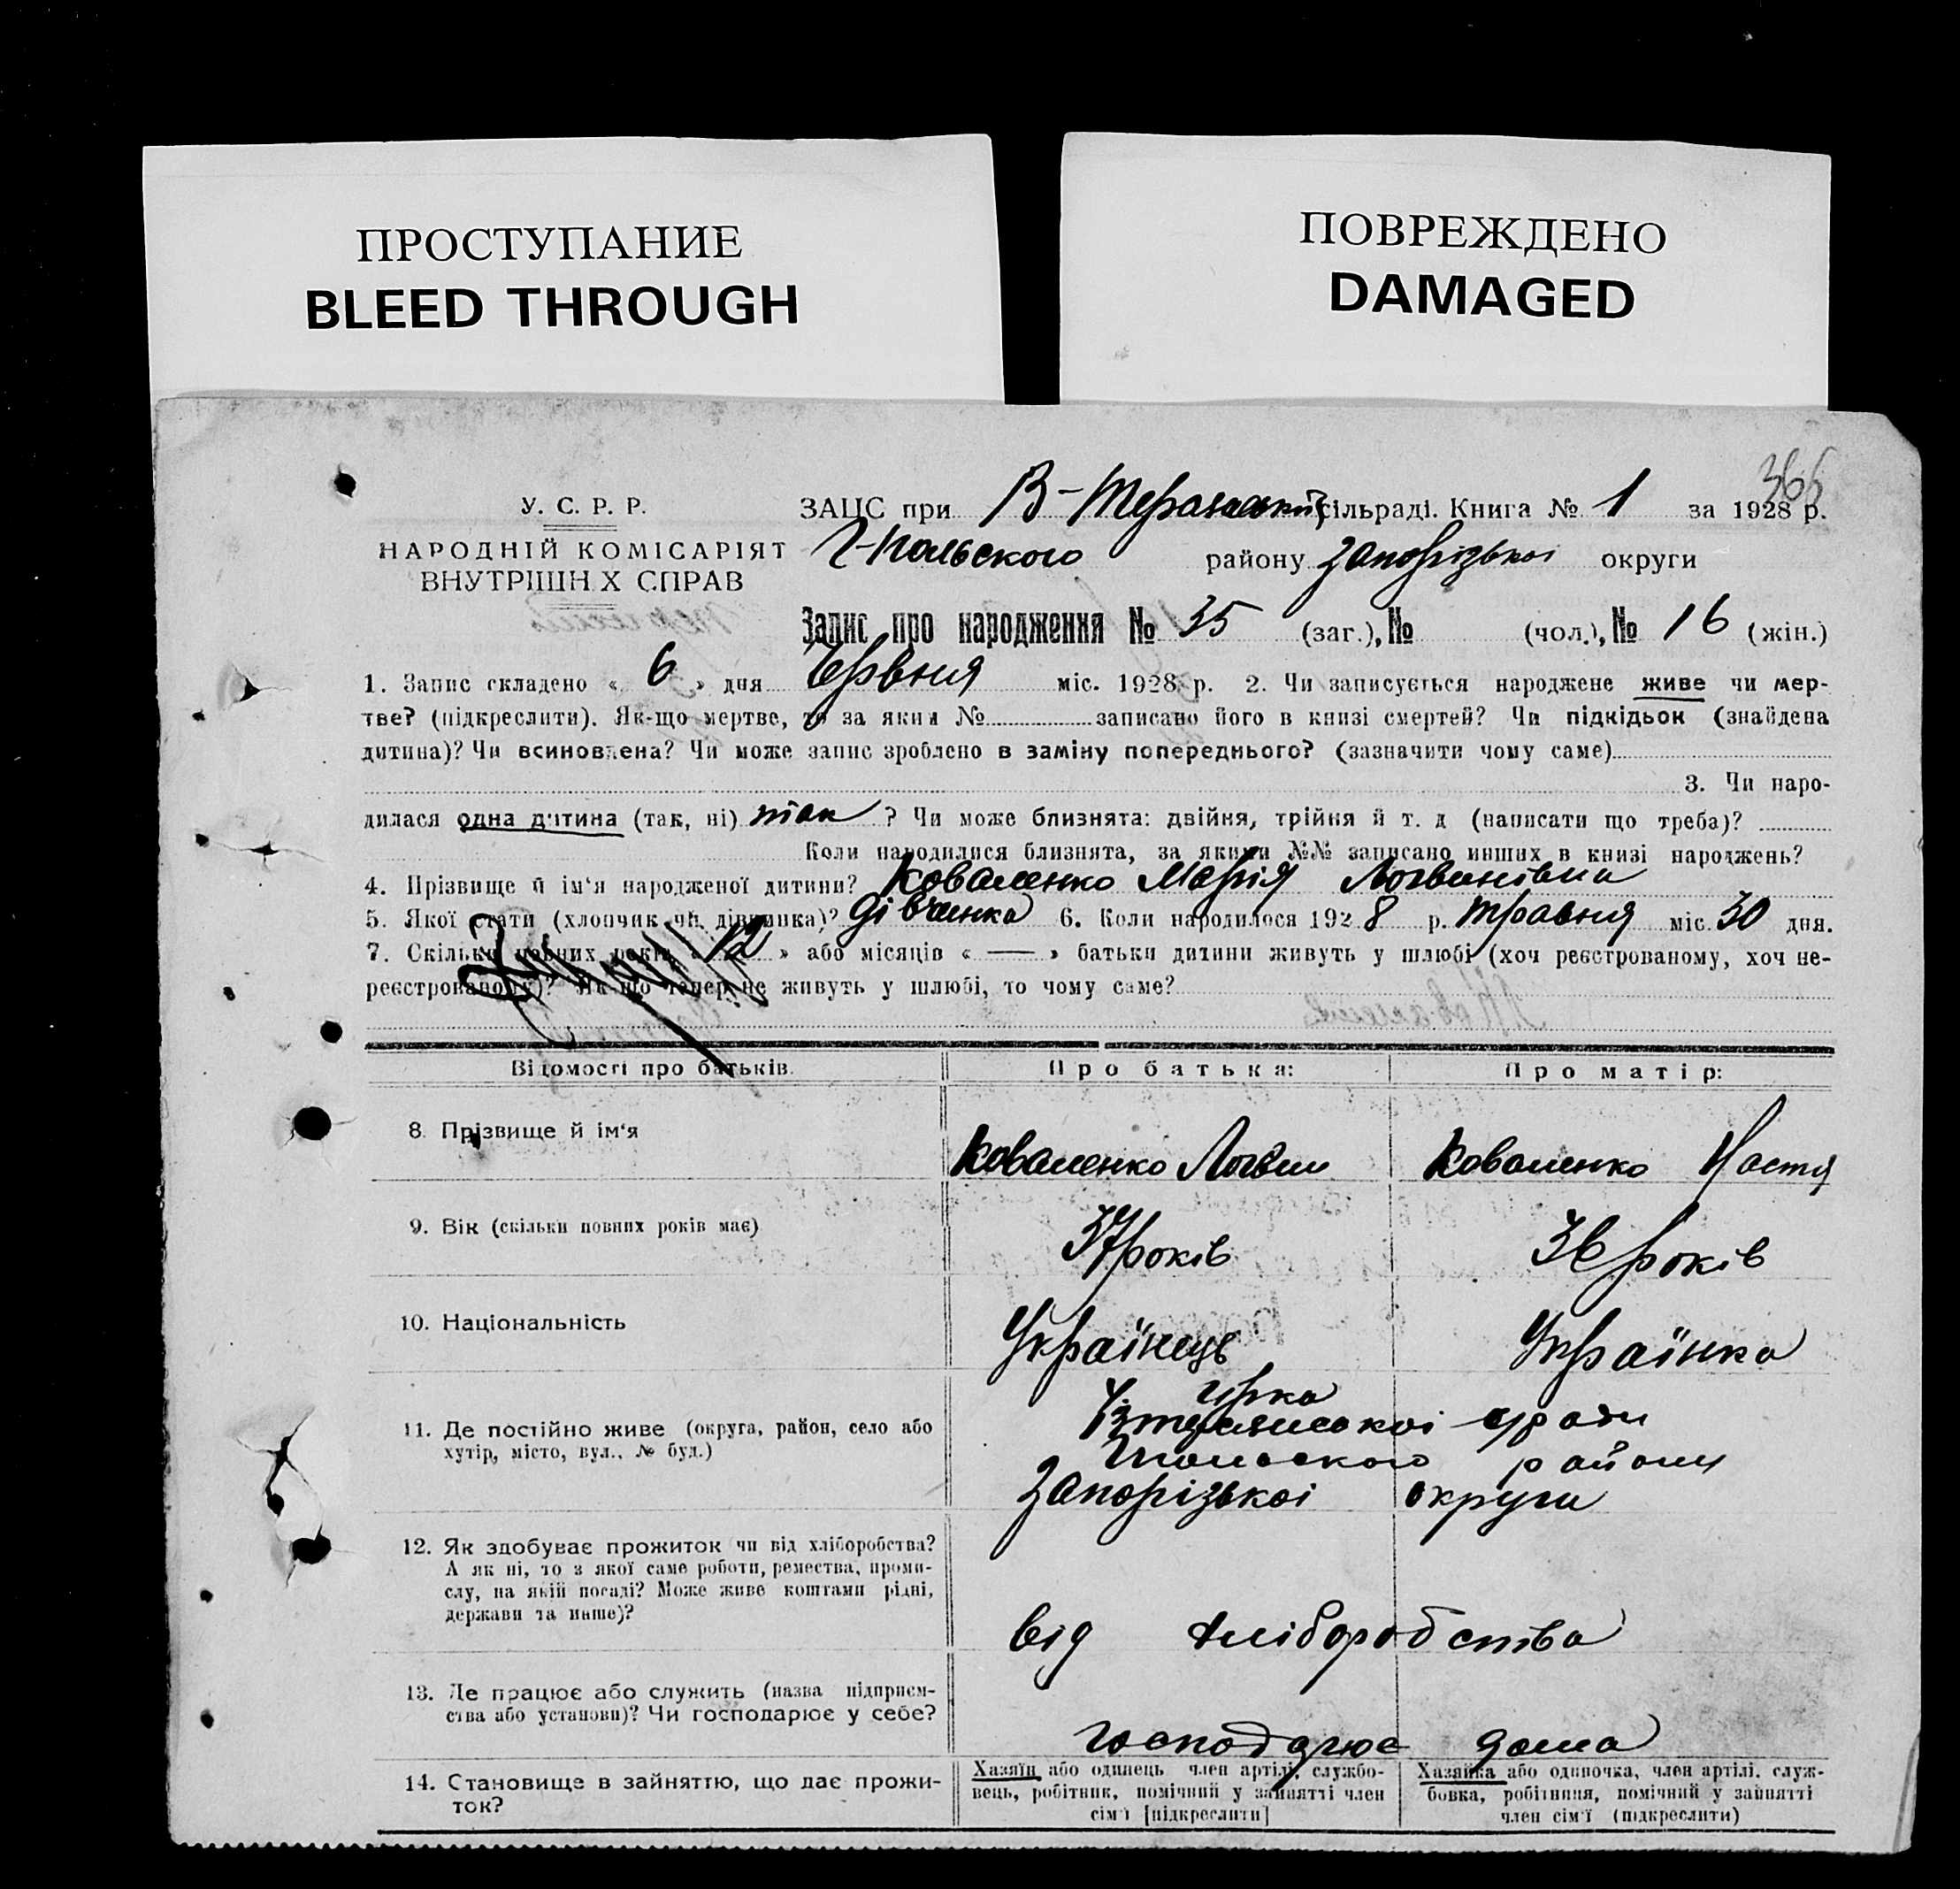 ПРОСТУПАНИЕ
BLEED THROUGH
ПОВРЕЖДЕНО
DAMAGED
365
У. С. Р. Р.
НАРОДНІЙ КОМІСАРІЯТ
ВНУТРІШН Х СПРАВ
ЗАЦС при В-Терсянській сільраді. Книга № 1 за 1928 р.
Г-Польского району Запорізької округи
Запис про народження № 35 (заг.), № (чол.), № 16 (жін.)
1. Запис складено « 6 » дня Червня міс. 1928 р. 2. Чи записується народжене живе чи мер-
тве? (підкреслити). Як-що мертве, то за яким № записано його в книзі смертей? Чи підкідьок (знайдена
дитина)? Чи всиновлена? Чи може запис зроблено в заміну попереднього? (зазначити чому саме)
3. Чи наро-
дилася одна дитина (так, ні) так ? Чи може близнята: двійня, трійня й т. д (написати що треба)?
Коли народилися близнята, за якими №№ записано инших в книзі народжень?
4. Прізвище й ім‘я народженої дитини? Коваленко Марія Логвинівна
5. Якої стати (хлопчик чи дівчинка)? дівчинка 6. Коли народилося 1928 р. травня міс. 30 дня.
7. Скільки повних років « 12 » або місяців « — » батьки дитини живуть у шлюбі (хоч реєстрованому, хоч не-
реєстрованому)? Як-що тепер не живуть у шлюбі, то чому саме?
Відомості про батьків. Про батька: Про матір:
8. Прізвище й ім‘я Коваленко Логвин Коваленко Настя
9. Вік (скільки повних років має) 37 років 36 років
10. Національність Українець Українка
11. Де постійно живе (округа, район, село або
хутір, місто, вул., № буд.)
сради
району
Запорізької округи
12. Як здобуває прожиток чи від хліборобства?
А як ні, то з якої саме роботи, ремества, проми-
слу, на якій посаді? Може живе коштами рідні,
держави та инше)?
від хліборобства
13. Де працює або служить (назва підприєм-
ства або установи)? Чи господарює у себе?
господарює дома
14. Становище в зайняттю, що дає прожи-
ток?
Хазяїн або одинець член артілі, службо-
вець, робітник, помічний у зайнятті член
сім‘ї [підкреслити]
Хазяйка або одиночка, член артілі, служ-
бовка, робітниця, помічний у зайнятті
член сім‘ї (підкреслити)